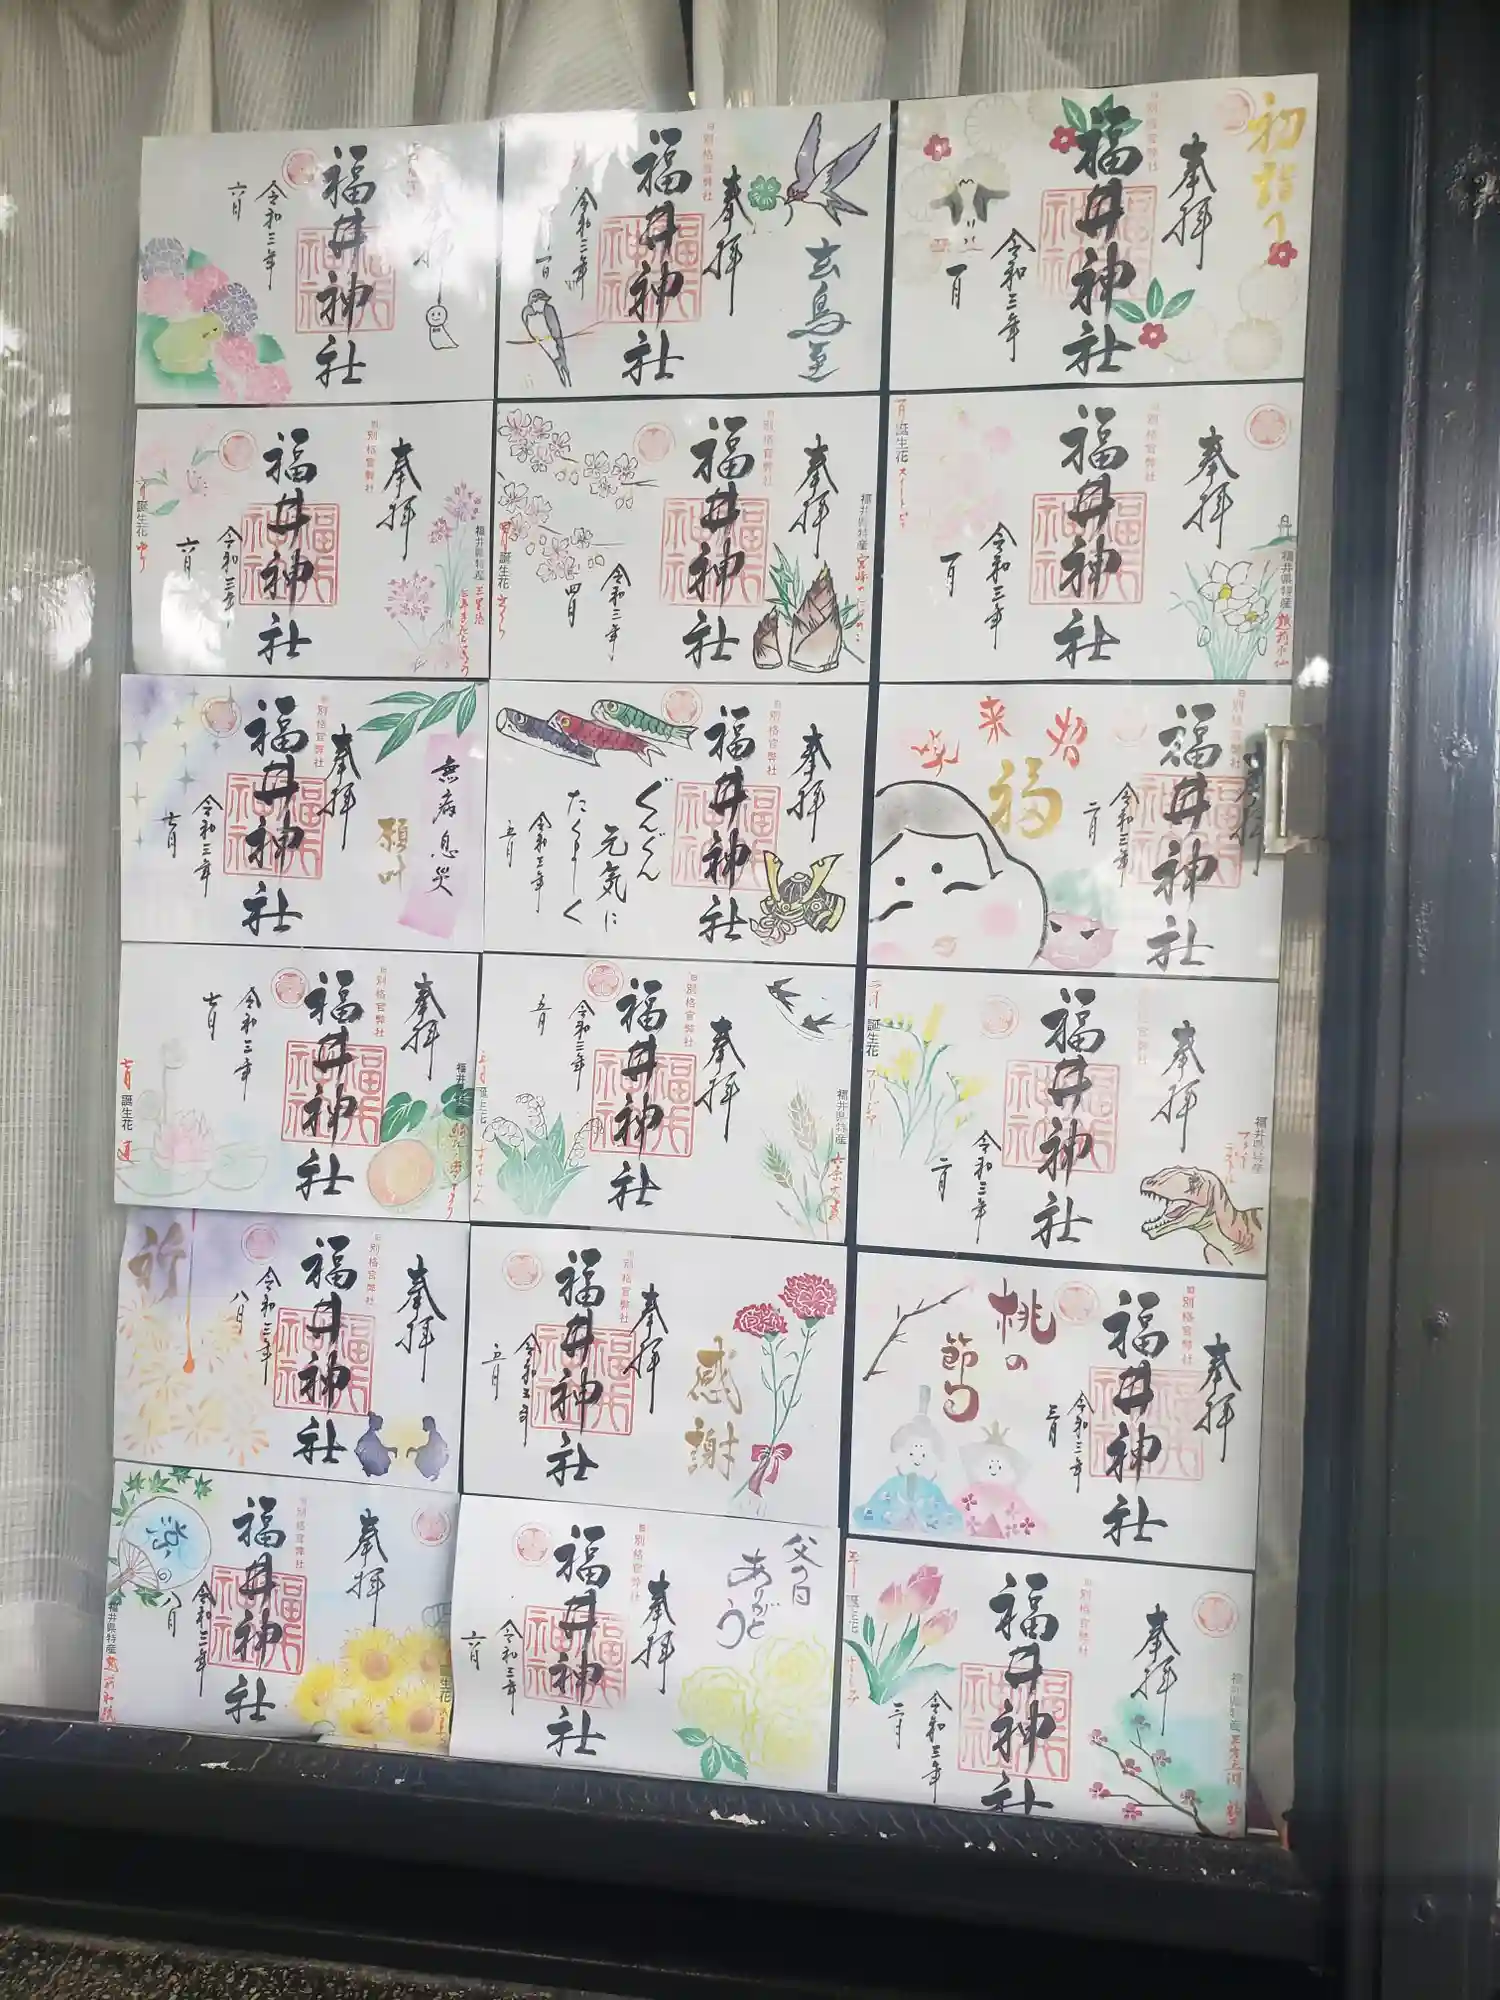 初詣り
奉拝
旧別格官弊社
福井神社
令和三年
一月
奉拝
福井県特産
越前水仙
旧別格官弊社
福井神社
令和三年
一月
一月
誕生花
スイートピー
来
福
旧別格官弊社
福井神社
令和三年
二月
奉拝
旧別格官弊社
福井神社
令和三年
二月
誕生花
フリージア
奉拝
旧別格官弊社
福井神社
桃の
節句
令和三年
三月
奉拝
福井県特産
旧別格官弊社
福井神社
令和三年
三月
誕生花
玄鳥至
奉拝
旧別格官弊社
福井神社
令和三年
奉拝
福井県特産
旧別格官弊社
福井神社
令和三年
四月
四月
誕生花
さくら
奉拝
旧別格官弊社
福井神社
ぐんぐん
元気に
たくましく
令和三年
五月
奉拝
福井県特産
六条大麦
旧別格官弊社
福井神社
令和三年
五月
誕生花
すずらん
感謝
奉拝
旧別格官弊社
福井神社
令和三年
五月
父の日
ありがとう
奉拝
旧別格官弊社
福井神社
令和三年
六月
奉拝
福井神社
令和三年
六月
奉拝
福井県特産
旧別格官弊社
福井神社
令和三年
六月
誕生花
ゆり
無病息災
願叶
奉拝
旧別格官弊社
福井神社
令和三年
七月
奉拝
旧別格官弊社
福井神社
令和三年
七月
七月
誕生花
蓮
奉拝
旧別格官弊社
福井神社
令和三年
八月
祈
奉拝
旧別格官弊社
福井神社
令和三年
八月
涼
福井県特産
越前和紙